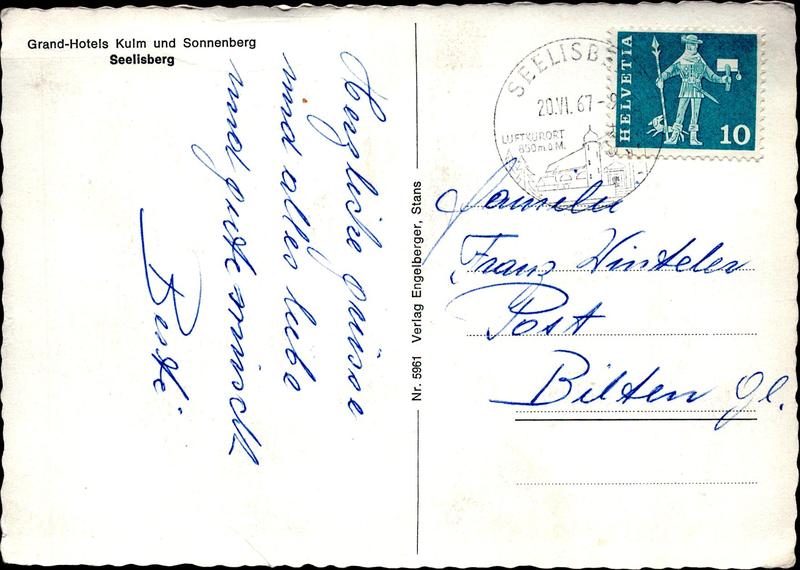 Grand-Hotels Kulm und Sonnenberg
Seelisberg
Herzliche grüsse
und alles liebe
und gute
Nr. 5961 Verlag Engelberger, Stans
SEELISB
20.VI.67-9
LUFTKURORT
850 m ü M.
HELVETIA
10
Familie
Franz Winteler
Post
Bilten Gl.